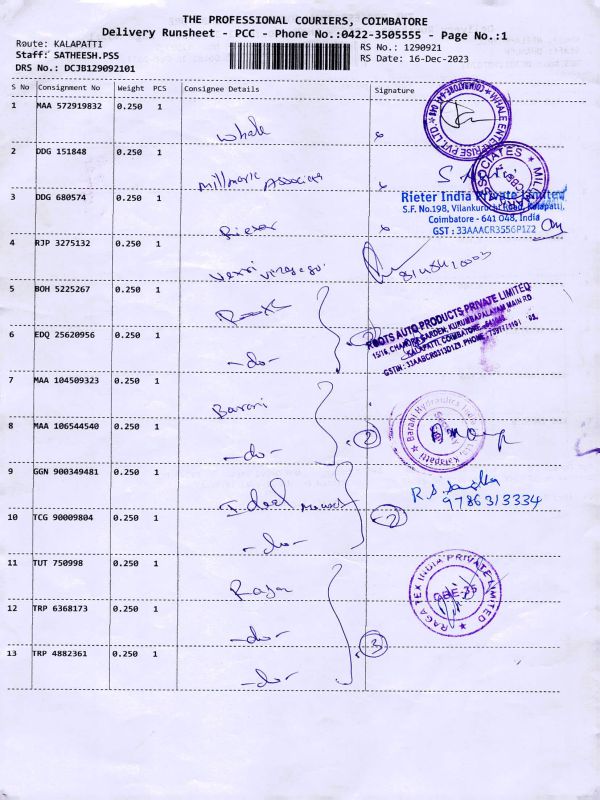 THE PROFESSIONAL COURIERS, COIMBATORE
Delivery Runsheet - PCC - Phone No.:0422-3505555 - Page No.:1
Route: KALAPATTI
Staff: SATHEESH.PSS
DRS No.: DCJB129092101
RS No.: 1290921
RS Date: 16-Dec-2023
S No Consignment No Weight PCS Consignee Details Signature
1 MAA 572919832 0.250 1 Whale
WHALE ENTERPRISE PVT LTD
COIMBATORE
2 DDG 151848 0.250 1 Millmaric Associates
ASSOCIATES
3 DDG 680574 0.250 1
Rieter India Private Limited
S.F. No.198, Vilankurichi Road, Kalapatti,
Coimbatore - 641 048, India
GST : 33AAACR3556P1Z2
4 RJP 3275132 0.250 1
5 BOH 5225267 0.250 1
ROOTS AUTO PRODUCTS PRIVATE LIMITED
15/16, CHANDRA GARDEN, KURUMBAPALAYAM MAIN RD
KALAPATTI, COIMBATORE
6 EDQ 25620956 0.250 1 -do-
7 MAA 104509323 0.250 1 Barani
8 MAA 106544540 0.250 1 -do- 2
Barani Hydraulics India
Kalapatti
9 GGN 900349481 0.250 1 Ideal
9786313334
10 TCG 90009804 0.250 1 -do- 2
11 TUT 750998 0.250 1 Raga
RAGA TEX INDIA PRIVATE LIMITED
CBE-35
12 TRP 6368173 0.250 1 -do- 3
13 TRP 4882361 0.250 1 -do-